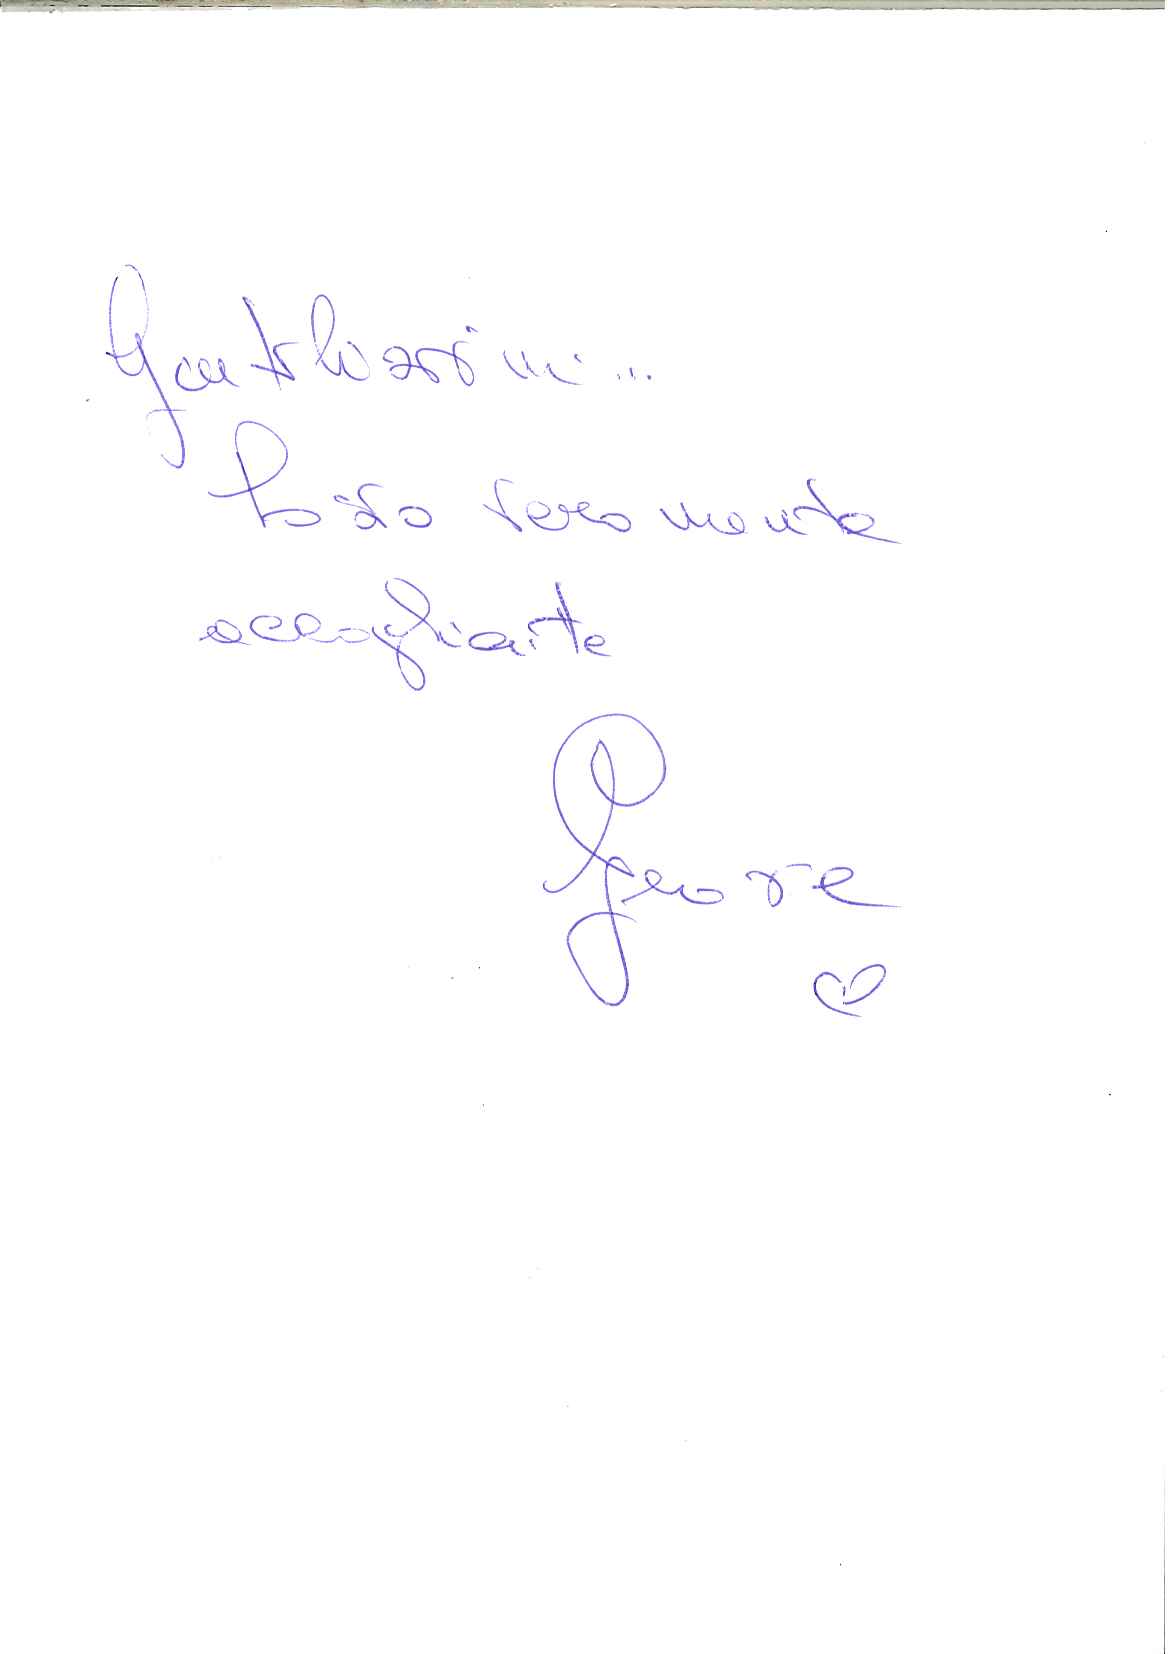 Gentilissimi...
Posto veramente
accogliente